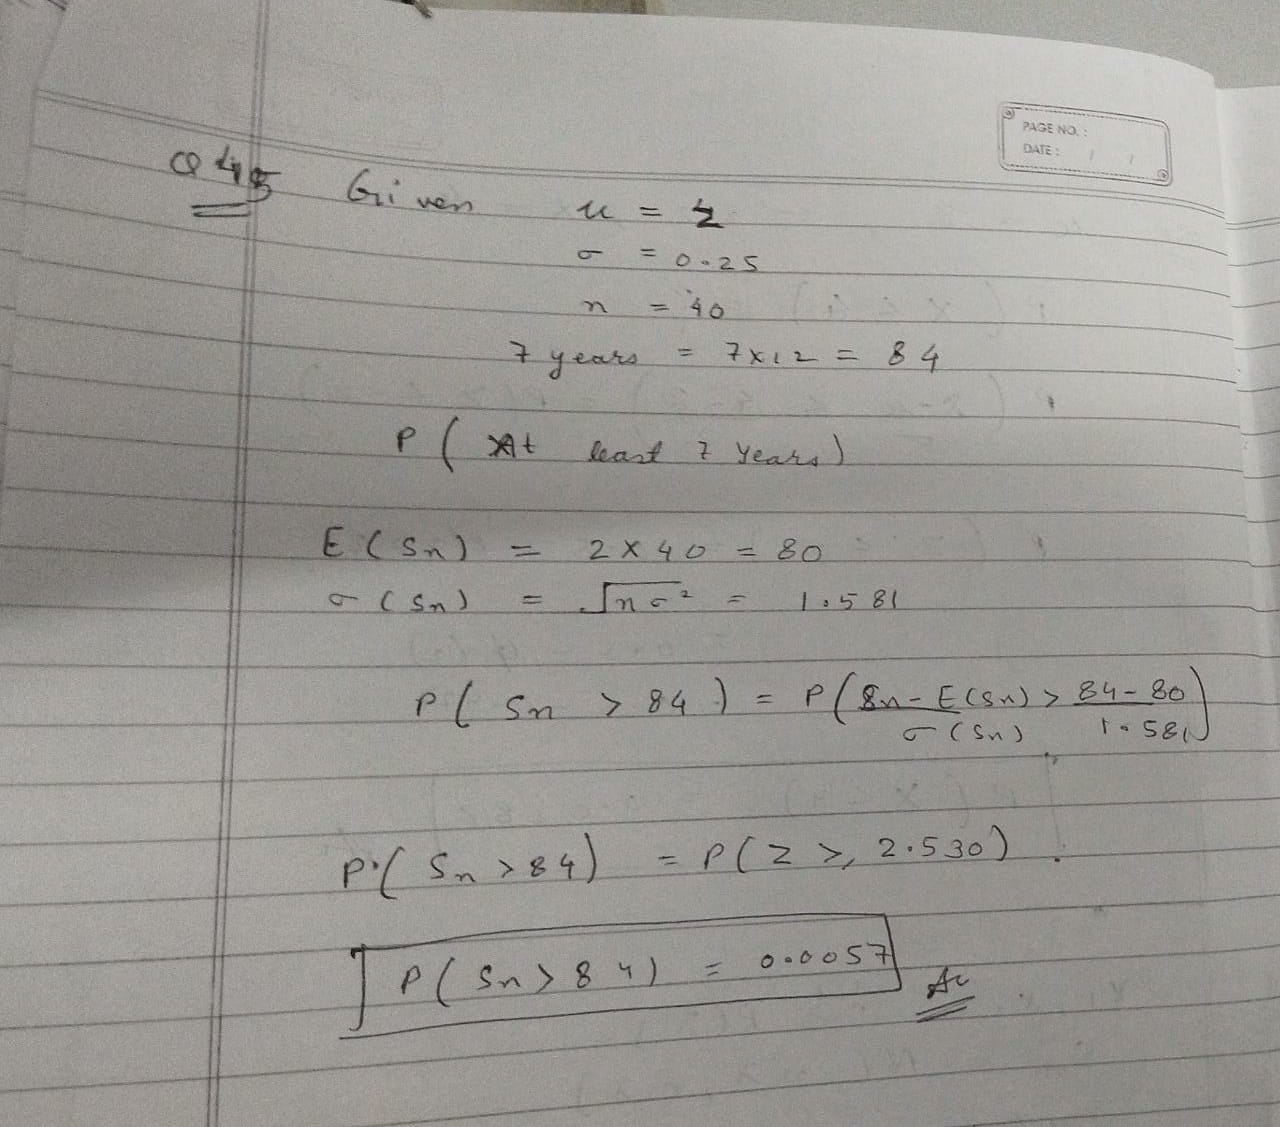 PAGE NO. :
DATE : / /
Q 45 Given u = 2
σ = 0.25
n = 40
7 years = 7x12 = 84
P ( At least 7 Years)
E ( Sn) = 2 x 40 = 80
σ ( Sn) = √nσ² = 1.581
P ( Sn > 84 ) = P ( Sn - E(Sn) > 84 - 80 )
σ (Sn) 1.581
P ( Sn > 84) = P ( Z > 2.530)
P ( Sn > 84) = 0.0057